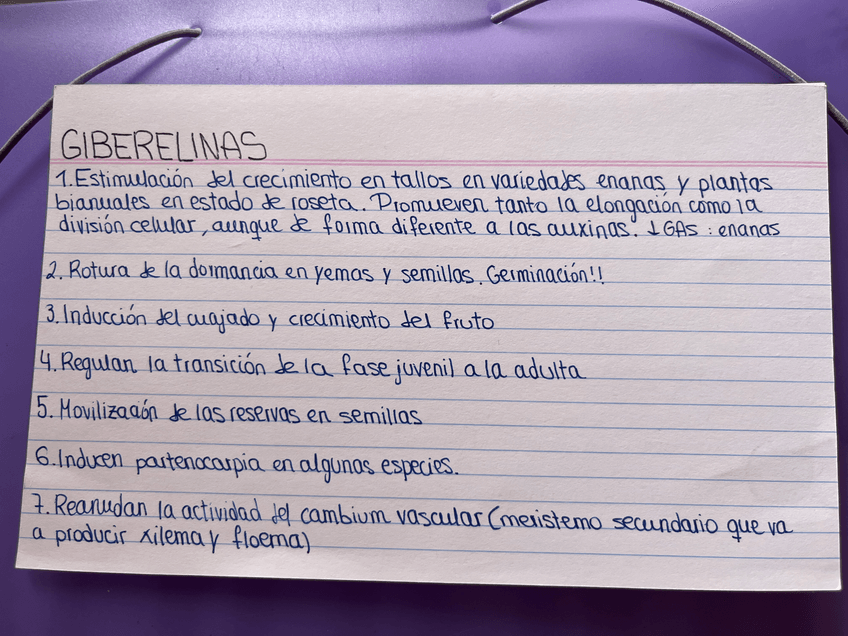 GIBERELINAS
1. Estimulación del crecimiento en tallos en variedades enanas y plantas
bianuales en estado de roseta. Promueven tanto la elongación como la
división celular, aunque de forma diferente a las auxinas. ↓GAs : enanas
2. Rotura de la dormancia en yemas y semillas. Germinación!!
3. Inducción del cuajado y crecimiento del fruto
4. Regulan la transición de la fase juvenil a la adulta
5. Movilización de las reservas en semillas
6. Inducen partenocarpia en algunas especies.
7. Reanudan la actividad del cambium vascular (meristemo secundario que va
a producir xilema y floema)